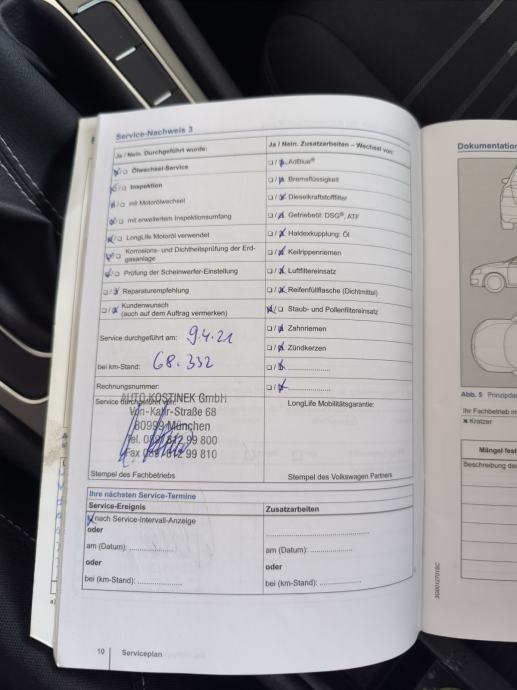 Service-Nachweis 3
Ja / Nein. Durchgeführt wurde:
Ölwechsel-Service
Inspektion
mit Motorölwechsel
mit erweitertem Inspektionsumfang
LongLife Motoröl verwendet
Korrosions- und Dichtheitsprüfung der Erd-
gasanlage
Prüfung der Scheinwerfer-Einstellung
Reparaturempfehlung
Kundenwunsch
(auch auf dem Auftrag vermerken)
Service durchgeführt am: 9.4.21
bei km-Stand: 68.332
Rechnungsnummer:
Service durchgeführt von:
AUTO KOSTINEK GmbH
Von-Kahr-Straße 68
80999 München
Tel. 089/812 99 800
Fax 089/812 99 810
Stempel des Fachbetriebs
Ja / Nein. Zusatzarbeiten – Wechsel von:
AdBlue®
Bremsflüssigkeit
Dieselkraftstofffilter
Getriebeöl: DSG®, ATF
Haldexkupplung: Öl
Keilrippenriemen
Luftfiltereinsatz
Reifenfüllflasche (Dichtmittel)
Staub- und Pollenfiltereinsatz
Zahnriemen
Zündkerzen
LongLife Mobilitätsgarantie:
Stempel des Volkswagen Partners
Ihre nächsten Service-Termine
Service-Ereignis
nach Service-Intervall-Anzeige
oder
am (Datum): ....................
oder
bei (km-Stand): ....................
Zusatzarbeiten
am (Datum): ....................
oder
bei (km-Stand): ....................
10 Serviceplan
Dokumentation
Abb. 5
Ihr Fachbetrieb
Kratzer
Mängel
Beschreibung